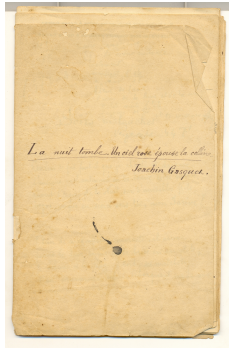 La nuit tombe. Un ciel rose épouse la colline
Joachim Gasquet.